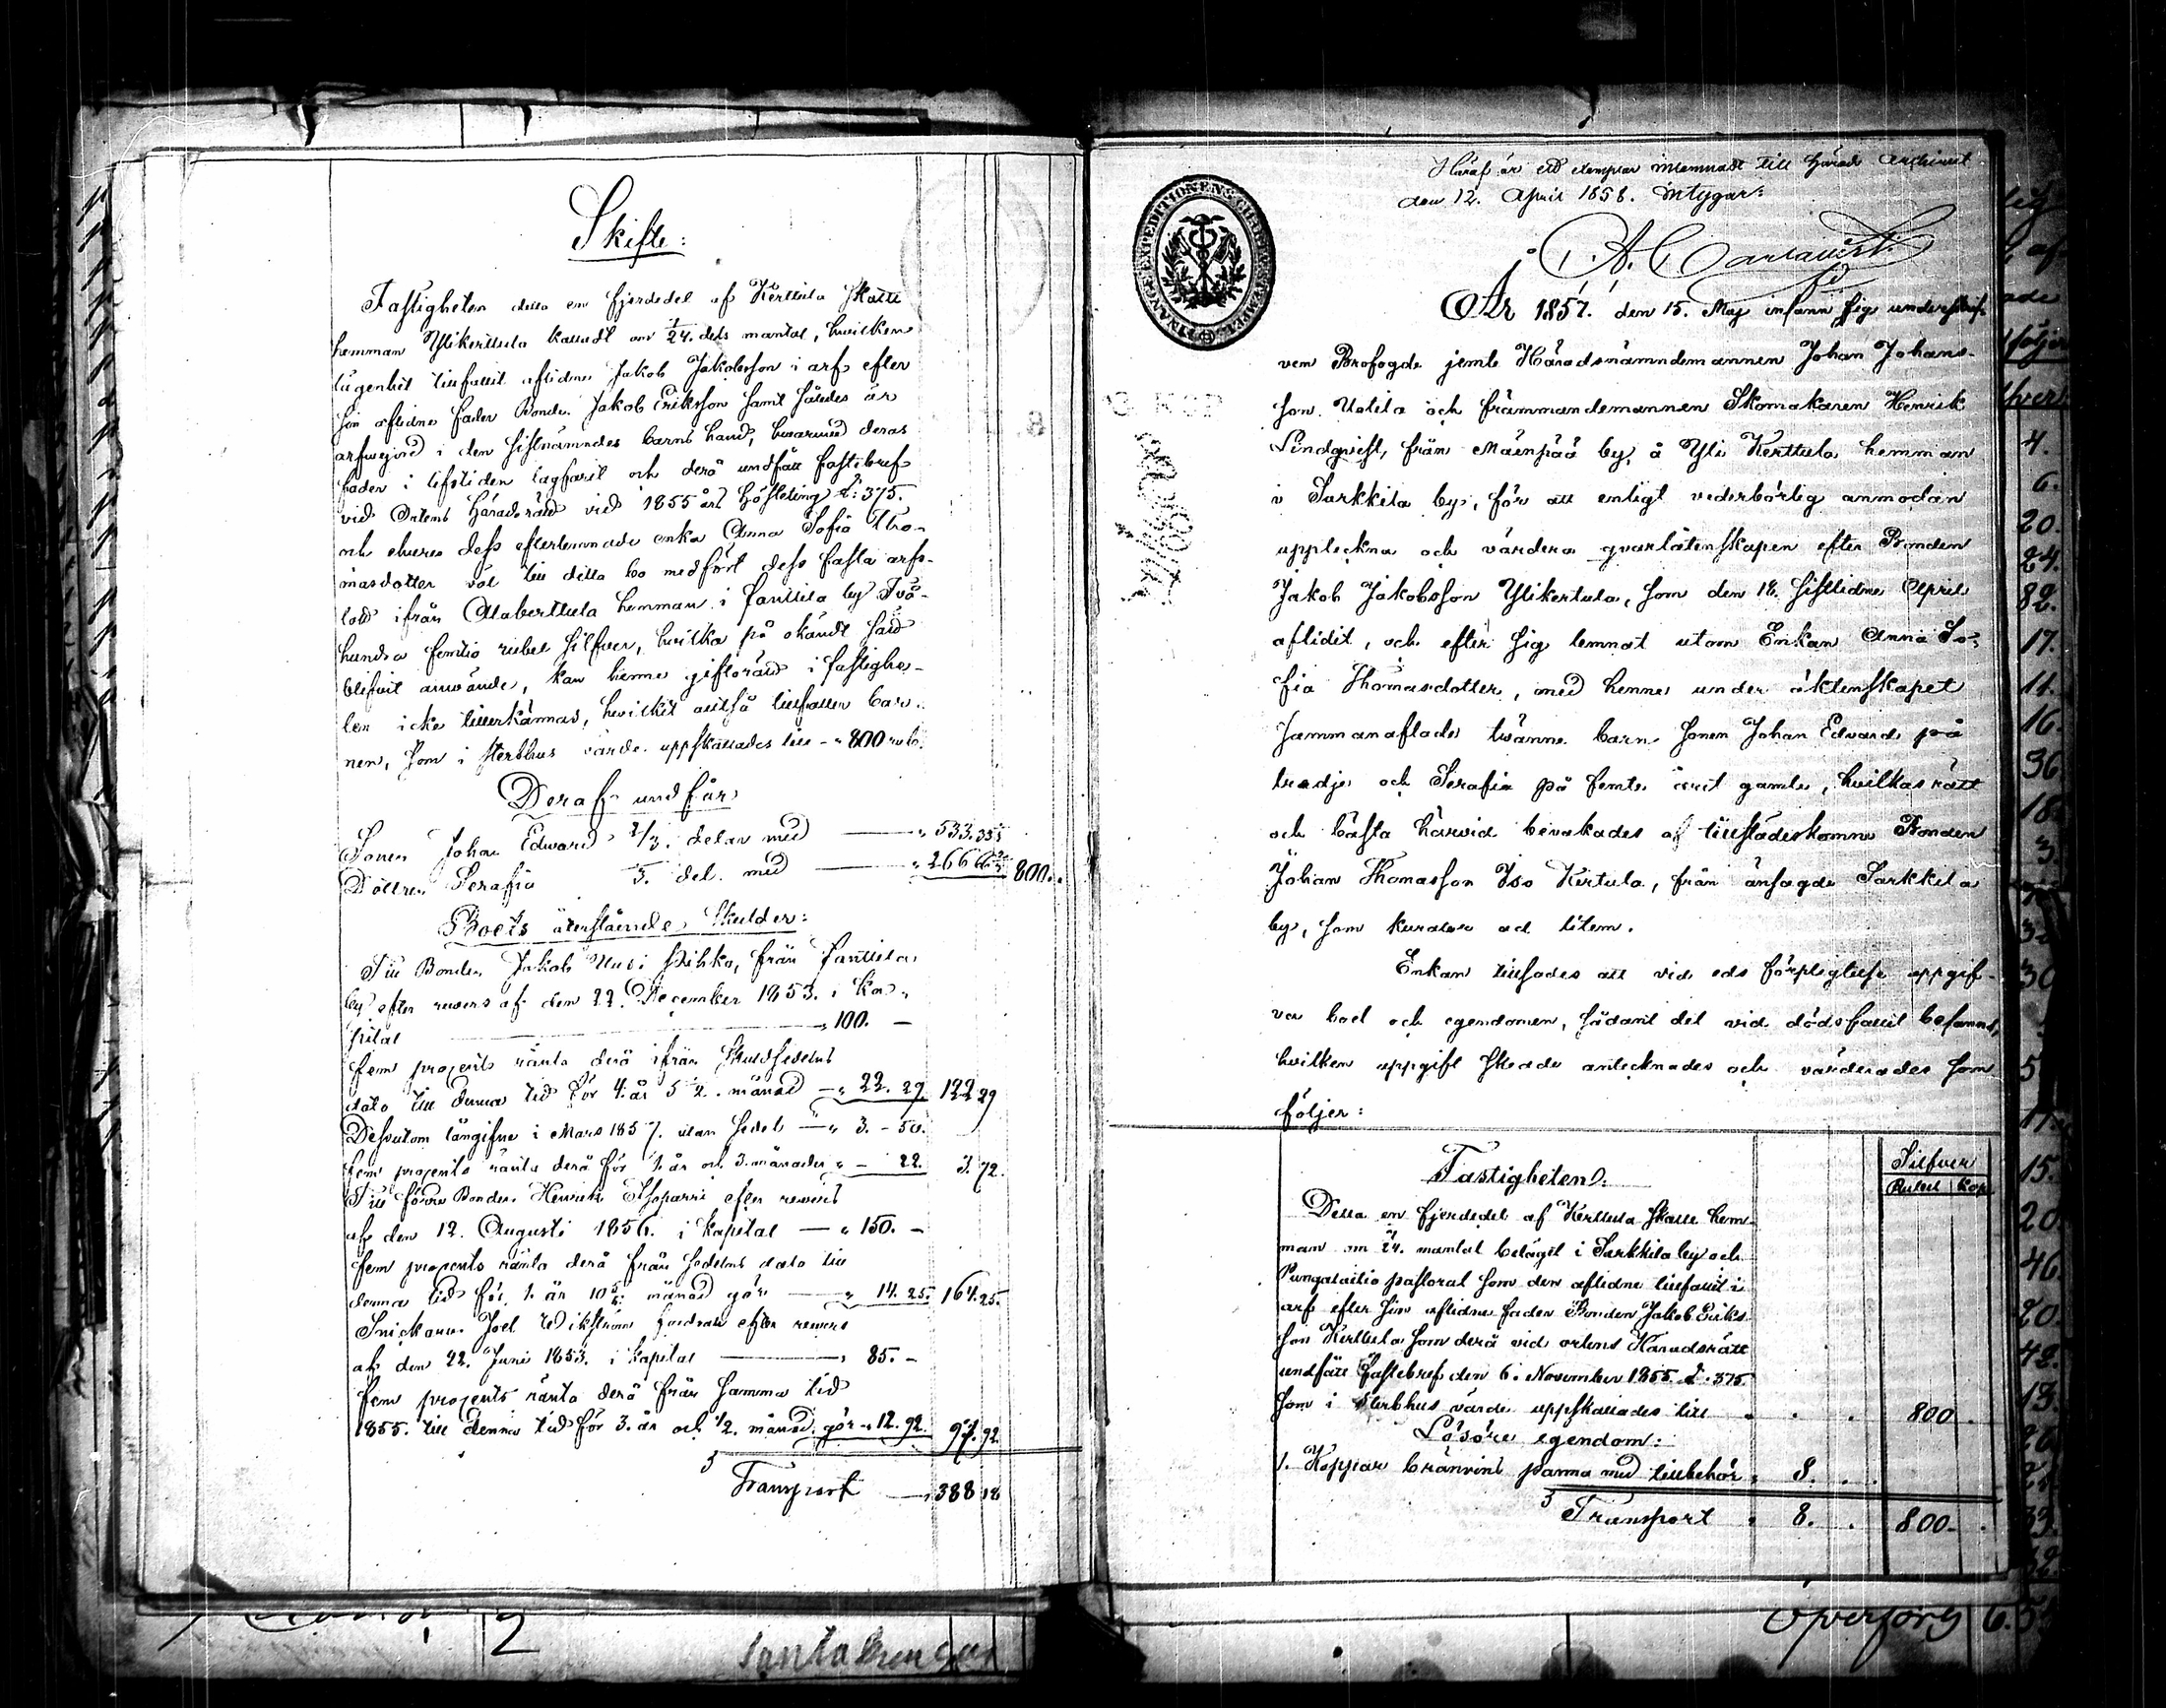 Skifte:
Fastigheten detta en fjerdedel af Kerttula Skatte
hemman Ylikerttula kalladt om 1/24. dels mantal, hvilken
lägenhet tillfallit aflidne Jakob Jakobsson i arf efter
sin aflidne fader Bonden Jakob Eriksson samt således är
arfvejord i den sistnämndes barns hand, hvarmed deras
fader i lifstiden lagfarit och derå undfått fastebref
vid Ortens Häradsrätt vid 1855 års Hösteting §: 375.
och ehuru dess efterlemnade enka Anna Sofia Tho-
masdotter väl till detta bo medfört dess fasta arfs-
lod ifrån Alakerttula hemman i by Två-
hundra femtio rubel silfver, hvilka på okändt sätt
blifvit använde, kan henne giftorätt i fastighe-
ten icke tillerkännas, hvilket alltså tillfaller bar-
nen, som i sterbhus värde uppskattades till - " 800 rub.
Deraf undfår
Sonen Johan Edward 2/3. delar med " 533.33 1/3
Dottren Serafia 3. del. med " 266 800.
Boets återstående Skulder:
Till Bonden Jakob Uusi Pihko, från
by efter revers af den 22. December 1853. i Ka-
pital " 100. -
fem procents ränta derå ifrån Skuldsedelns
dato till denna tid för 4. år 5 1/2. månad - " 22. 29. 122 29
Dessutom långifne i Mars 1857. utan sedel - " 3. - 50.
fem procents ränta derå för 1. år och 3. månader " - 22. 3. 72.
Till förre Bonden Henrik efter revers
af den 12. Augusti 1856. i Kapital - " 150. -
fem procents ränta derå från sedelns dato till
denna tid för 1. år 10 månad gör " 14. 25. 164. 25.
Snickaren Joel Wikström fordrar efter revers
af den 22. Juni 1853. i Kapital " 85. -
fem procents ränta derå från samma tid
1855. till denna tid för 3. år och 1/2. månad gör - " 12. 92. 97. 92
Transport " 388 18
Häraf är ett exemplar inlemnadt till Härads Archivet
den 12. April 1858. intygar:
FINANCE EXPEDITIONENS CHARTÆ STEMPEL
År 1857. den 15. Maj infann sig underskrif-
ven Brofogde jemte Häradsnämndemannen Johan Johans-
son Uotila och främmandemannen Skomakaren Henrik
Lindqvist, från Mäenpää by, å Yli Kerttula hemman
i Sarkkila by, för att enligt vederbörlig anmodan
uppteckna och värdera qvarlåtenskapen efter Bonden
Jakob Jakobsson Ylikertula, som den 18. sistlidne April
aflidit, och efter sig lemnat utom Enkan Anna So-
fia Thomasdotter, med henne under äktenskapet
sammanaflade tvänne barn Sonen Johan Edvard på
tredje och Serafia på femte året gamla, hvilkas rätt
och bästa härvid bevakades af tillstädeskomne Bonden
Johan Thomasson Iso Kertula, från ansagde Sarkkila
by, som kurator ad litem.
Enkan tillsades att vid eds förpligtelse uppgif-
va boet och egendomen, sådant det vid dödsfallet befanns,
hvilken uppgift skedde antecknades och värderades som
följer:
Silfver
Rubel Kop
Fastigheten:
Detta en fjerdedel af Kerttula Skatte hem-
man om 1/24. mantal beläget i Sarkkila by och
Pungalaitio pastorat som den aflidne tillfallit i
arf efter sin aflidne fader Bonden Jakob Eriks-
son Kerttula som derå vid ortens Häradsrätt
undfått fastebref den 6. November 1855. §. 375.
som i Sterbhus värde uppskattades till . . . 800 .
Lösöre egendom:
1. Koppar bränvins panna med tillbehör " 8. . .
Transport . 8. . 800. .
Överförg